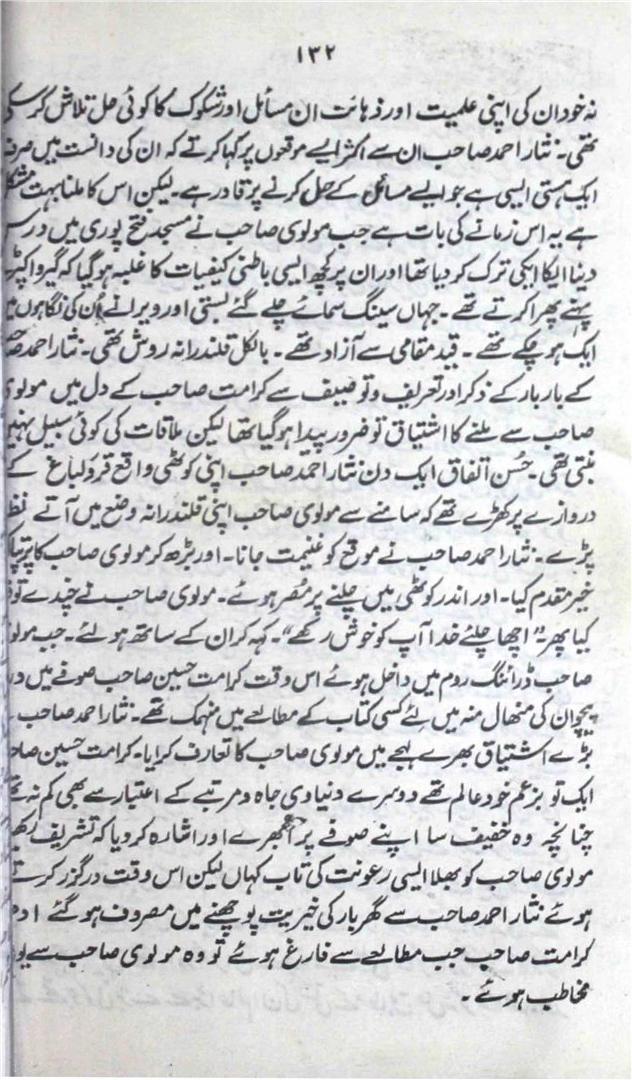 ۱۳۲
نہ خود ان کی اپنی علمیت اور ذہانت ان مسائل اور شکوک کا کوئی حل تلاش کر سکی
تھی۔ نثار احمد صاحب ان سے اکثر ایسے موقعوں پر کہا کرتے کہ ان کی دانست میں صرف
ایک ہستی ایسی ہے جو ایسے مسائل کے حل کرنے پر قادر ہے۔ لیکن اس کا ملنا بہت مشکل
ہے یہ اس زمانے کی بات ہے جب مولوی صاحب نے مسجد فتح پوری میں درس
دینا ایکا ایکی ترک کر دیا تھا اور ان پر کچھ ایسی باطنی کیفیات کا غلبہ ہو گیا کہ گیروا کپڑے
پہنے پھرا کرتے تھے۔ جہاں سینگ سمائے چلے گئے بستی اور ویرانے اُن کی نگاہوں میں
ایک ہو چکے تھے۔ قید مقامی سے آزاد تھے۔ بالکل قلندرانہ روش تھی۔ نثار احمد صاحب
کے بار بار کے ذکر اور تعریف و توصیف سے کرامت صاحب کے دل میں مولوی
صاحب سے ملنے کا اشتیاق تو ضرور پیدا ہو گیا تھا لیکن ملاقات کی کوئی سبیل نہیں
بنتی تھی۔ حُسن اتفاق ایک دن نثار احمد صاحب اپنی کوٹھی واقع قرولباغ کے
دروازے پر کھڑے تھے کہ سامنے سے مولوی صاحب اپنی قلندرانہ وضع میں آتے نظر
پڑے۔ نثار احمد صاحب نے موقع کو غنیمت جانا۔ اور بڑھ کر مولوی صاحب کا پرتپاک
خیر مقدم کیا۔ اور اندر کوٹھی میں چلنے پر مُصر ہوئے۔ مولوی صاحب نے چندے توقف
کیا پھر "اچھا چلئے خدا آپ کو خوش رکھے"۔ کہہ کر ان کے ساتھ ہو لئے۔ جب مولوی
صاحب ڈرائنگ روم میں داخل ہوئے اس وقت کرامت حسین صاحب صوفے میں
پیچوان کی منھال منہ میں لئے کسی کتاب کے مطالعے میں منہمک تھے۔ نثار احمد صاحب
بڑے اشتیاق بھرے لہجے میں مولوی صاحب کا تعارف کرایا۔ کرامت حسین صاحب
ایک تو بزعم خود عالم تھے دوسرے دنیاوی جاہ و مرتبے کے اعتبار سے بھی کم نہ تھے
چنانچہ وہ خفیف سا اپنے صوفے پر اُبھرے اور اشارہ کر دیا کہ تشریف رکھیے
مولوی صاحب کو بھلا ایسی رعونت کی تاب کہاں لیکن اس وقت درگزر کرتے
ہوئے نثار احمد صاحب سے گھر بار کی خیریت پوچھنے میں مصروف ہو گئے ادھر
کرامت صاحب جب مطالعے سے فارغ ہوئے تو وہ مولوی صاحب سے یوں
مخاطب ہوئے۔